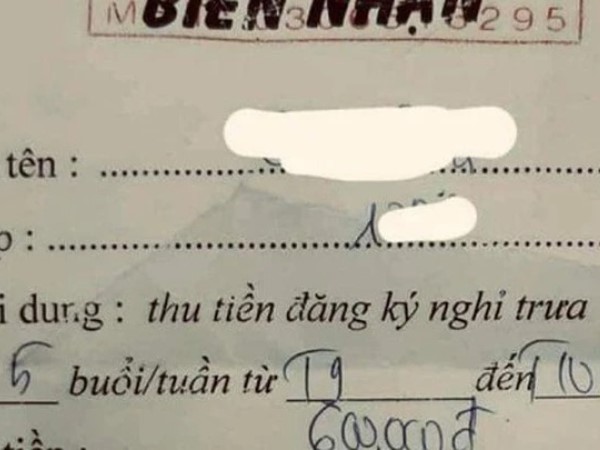 BIÊN NHẬN
tên :
p :
i dung : thu tiền đăng ký nghỉ trưa
5 buổi/tuần từ T9 đến T10
600.000đ